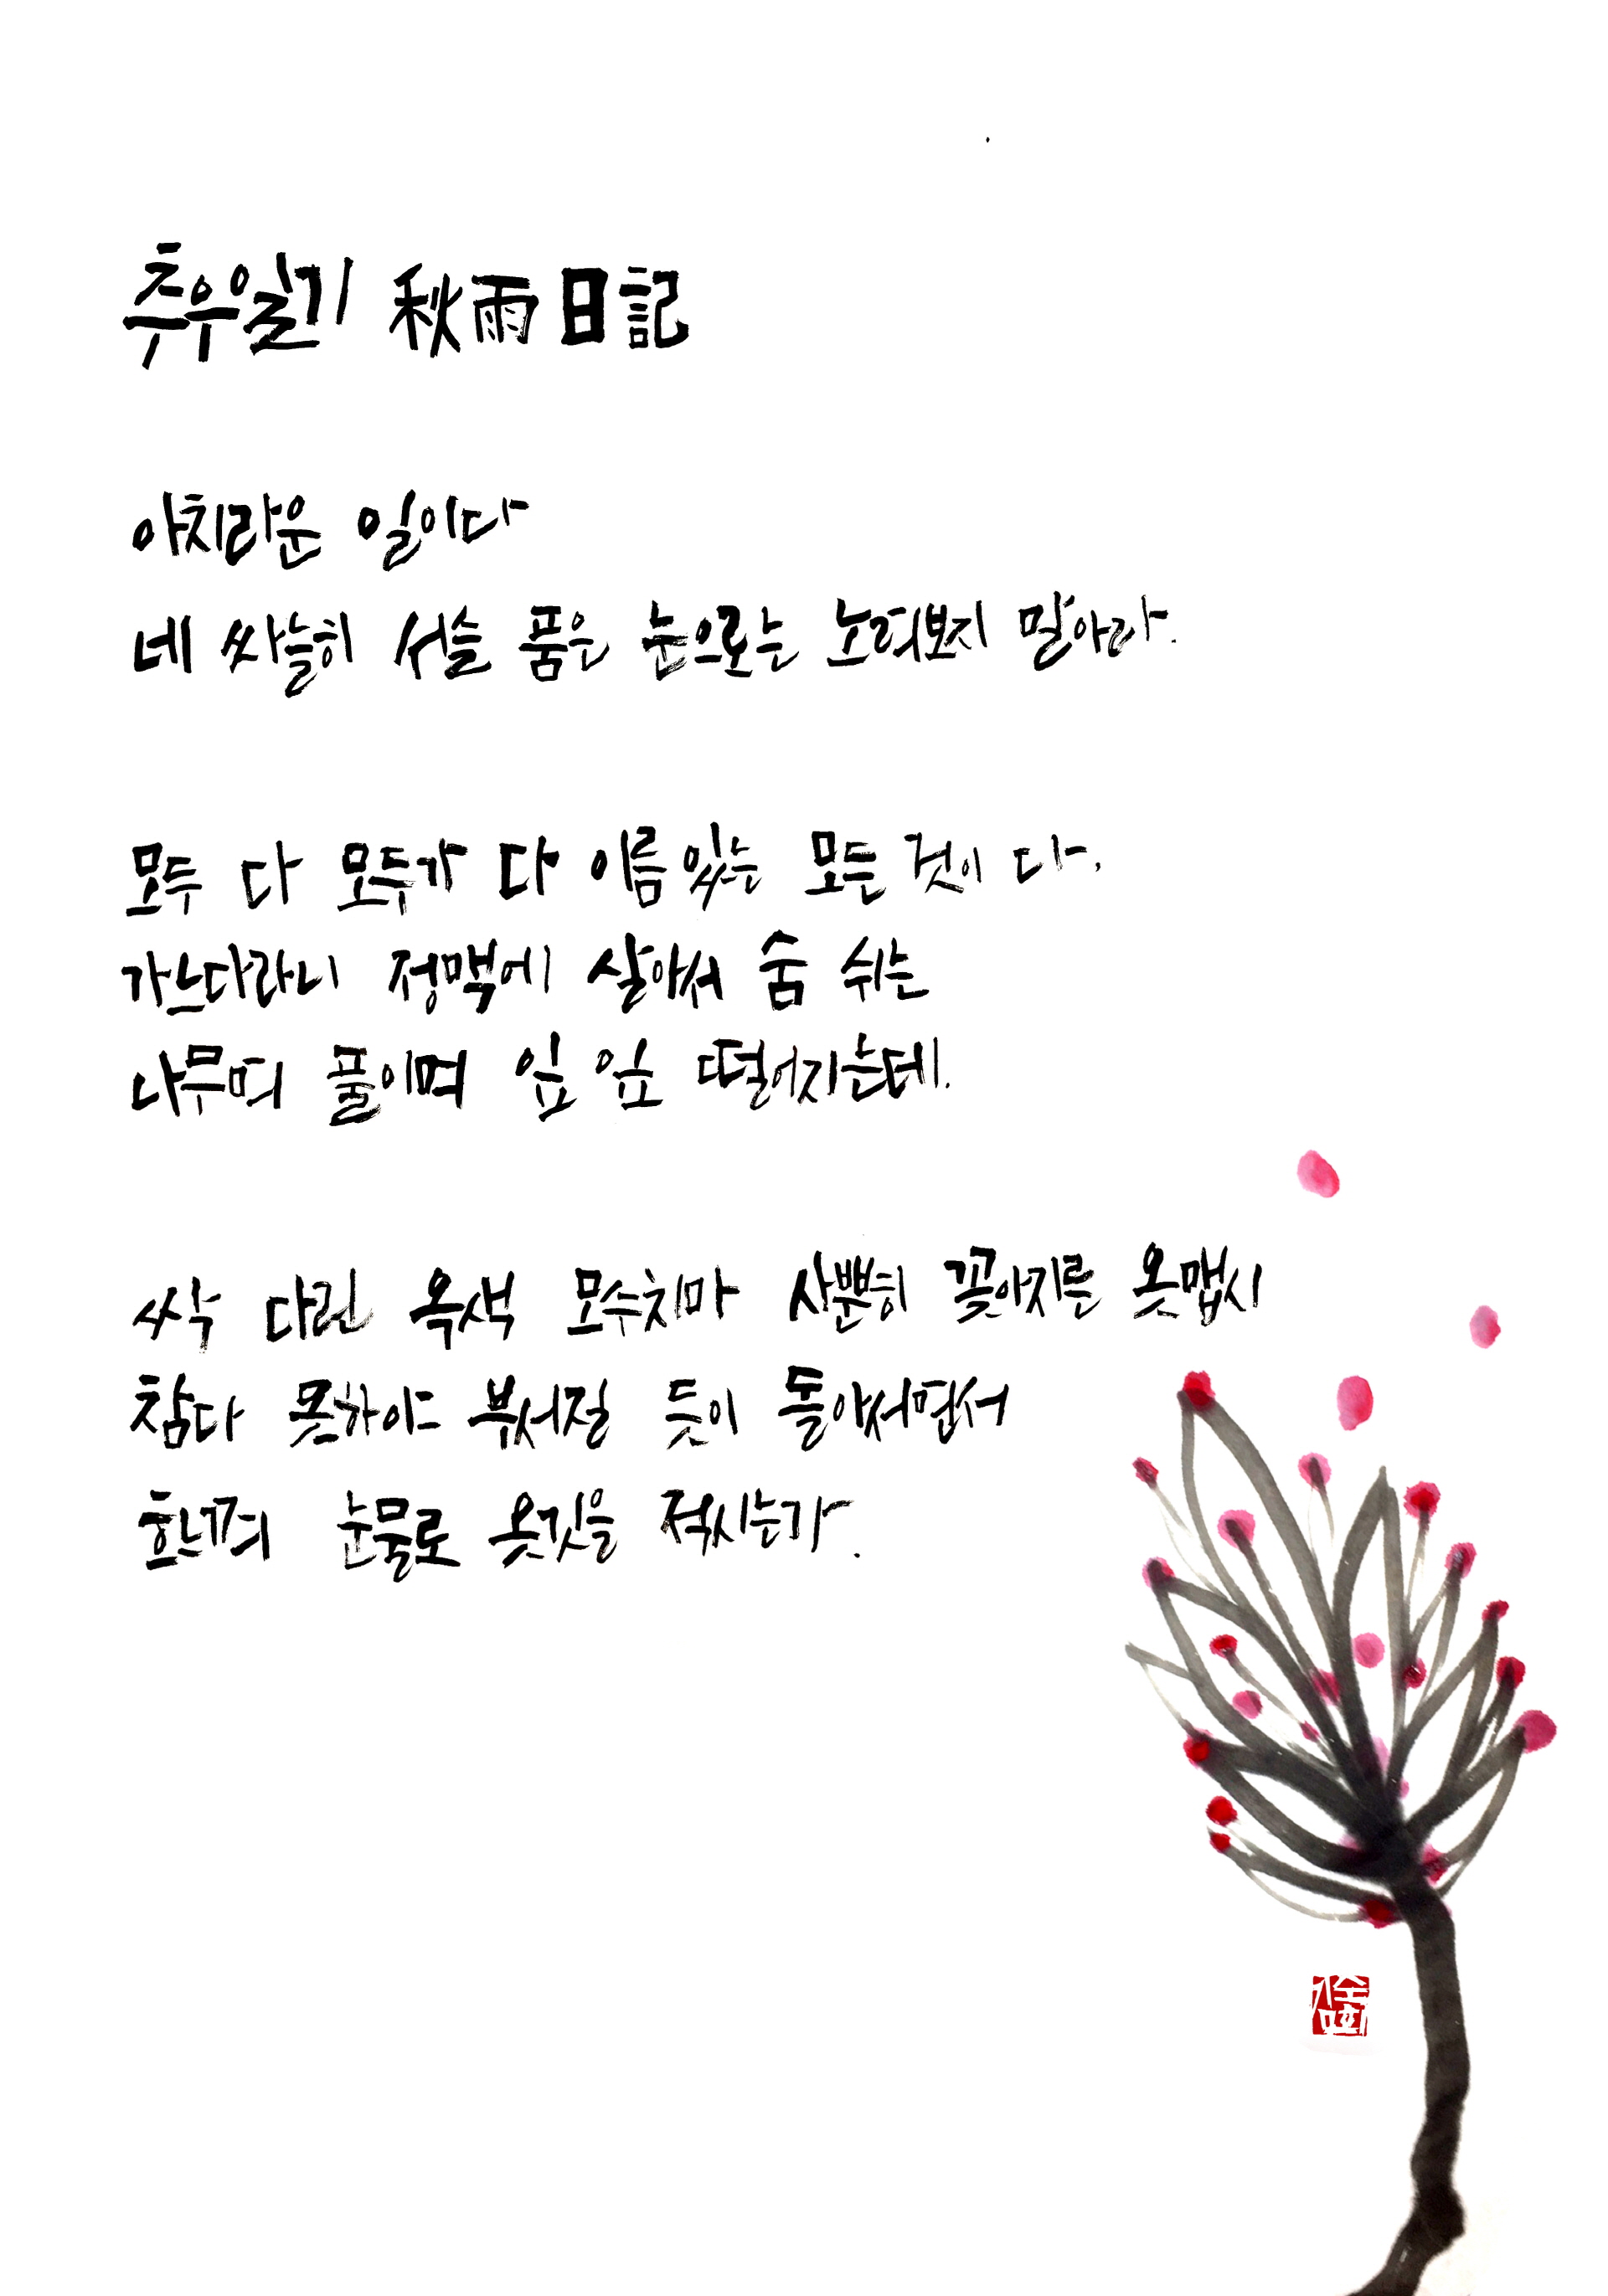 추우일기 秋雨日記
아치라운 일이다
네 싸늘히 서슬 품은 눈으로는 노려보지 말아라.
모두 다 모두가 다 이름 있는 모든 것이 다,
가느다라니 정맥에 살아서 숨 쉬는
나무며 풀이며 잎 잎 떨어지는데.
싹 다린 옥색 모수치마 사뿐히 꽂아지른 옷맵시
참다 못하야 부서질 듯이 돌아서면서
흐느껴 눈물로 옷깃을 적시는가.